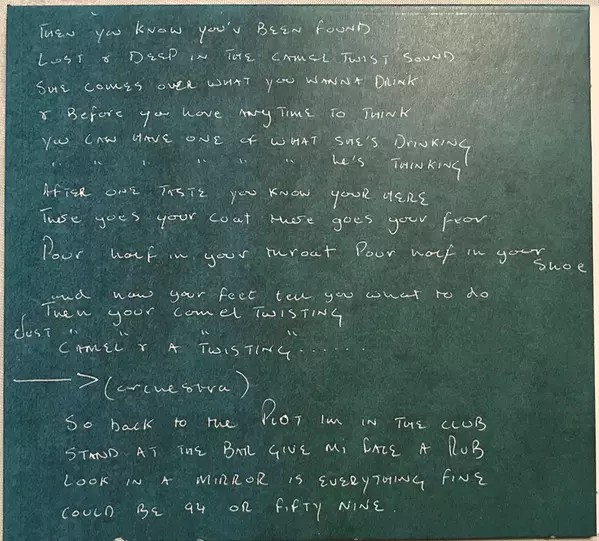 THEN YOU KNOW YOU'V BEEN FOUND
LOST & DEEP IN THE CAMEL TWIST SOUND
SHE COMES OVER WHAT YOU WANNA DRINK
& BEFORE YOU HAVE ANY TIME TO THINK
YOU CAN HAVE ONE OF WHAT SHE'S DRINKING
" " " " " " he's THINKING
AFTER ONE TASTE YOU KNOW YOUR HERE
There goes your coat there goes your fear
Pour half in your throat Pour half in your
Shoe
and now your feet tell you what to do
Then your camel TWISTING
JUST " " " "
CAMEL & A TWISTING......
(orchestra)
So back to the PLOT Im IN THE CLUB
STAND AT THE BAR GIVE MI FACE A RUB
LOOK IN A MIRROR IS EVERYTHING FINE
COULD BE 94 OR FIFTY NINE.